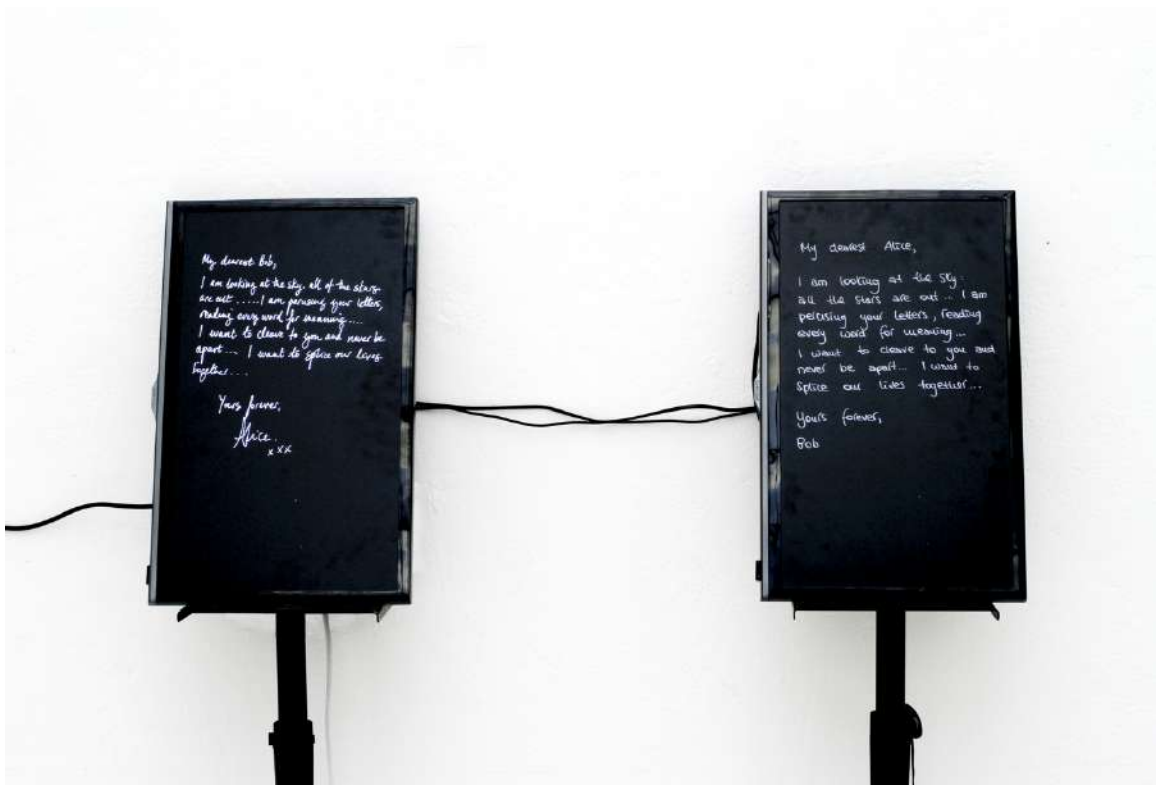 My dearest Bob,
I am looking at the sky. all of the stars
are out .....I am perusing your letters,
reading every word for meaning....
I want to cleave to you and never be
apart.... I want to splice our lives
together...
Yours forever,
Alice.
x x x
My dearest Alice,
I am looking at the sky.
all the stars are out... I am
perusing your letters, reading
every word for meaning...
I want to cleave to you and
never be apart... I want to
splice our lives together...
Yours forever,
Bob